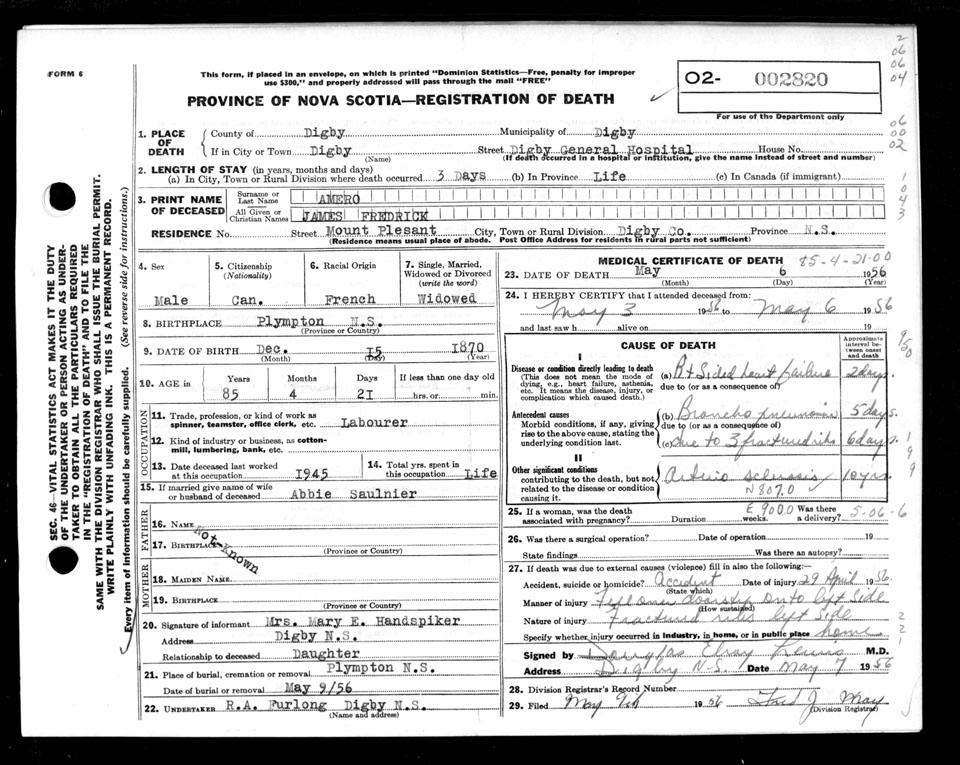 FORM 6
This form, if placed in an envelope, on which is printed "Dominion Statistics—Free, penalty for improper
use $300," and properly addressed will pass through the mail "FREE"
PROVINCE OF NOVA SCOTIA—REGISTRATION OF DEATH
02- 002820
For use of the Department only
2
06
06
04
06
00
02
1
0
4
3
SEC. 46—VITAL STATISTICS ACT MAKES IT THE DUTY
OF THE UNDERTAKER OR PERSON ACTING AS UNDER-
TAKER TO OBTAIN ALL THE PARTICULARS REQUIRED
IN THE "REGISTRATION OF DEATH" AND TO FILE THE
SAME WITH THE DIVISION REGISTRAR WHO SHALL ISSUE THE BURIAL PERMIT.
WRITE PLAINLY WITH UNFADING INK. THIS IS A PERMANENT RECORD.
Every item of information should be carefully supplied. (See reverse side for instructions.)
1. PLACE OF DEATH
County of Digby Municipality of Digby
If in City or Town Digby Street Digby General Hospital House No.
(Name) (If death occurred in a hospital or institution, give the name instead of street and number)
2. LENGTH OF STAY (in years, months and days)
(a) In City, Town or Rural Division where death occurred 3 Days (b) In Province Life (c) In Canada (if immigrant)
3. PRINT NAME OF DECEASED
Surname or Last Name AMERO
All Given or Christian Names JAMES FREDRICK
RESIDENCE No. Street Mount Plesant City, Town or Rural Division Digby Co. Province N.S.
(Residence means usual place of abode. Post Office Address for residents in rural parts not sufficient)
4. Sex
Male
5. Citizenship
(Nationality)
Can.
6. Racial Origin
French
7. Single, Married,
Widowed or Divorced
(write the word)
Widowed
8. BIRTHPLACE Plympton N.S.
(Province or Country)
9. DATE OF BIRTH Dec. 15 1870
(Month) (Day) (Year)
10. AGE in Years Months Days If less than one day old
85 4 21 hrs. or min.
OCCUPATION
11. Trade, profession, or kind of work as
spinner, teamster, office clerk, etc. Labourer
12. Kind of industry or business, as cotton-
mill, lumbering, bank, etc.
13. Date deceased last worked
at this occupation 1945
14. Total yrs. spent in
this occupation Life
15. If married give name of wife
or husband of deceased Abbie Saulnier
FATHER
16. NAME
Not Known
17. BIRTHPLACE
(Province or Country)
MOTHER
18. MAIDEN NAME
19. BIRTHPLACE
(Province or Country)
20. Signature of informant Mrs. Mary E. Handspiker
Address Digby N.S.
Relationship to deceased Daughter
21. Place of burial, cremation or removal Plympton N.S.
Date of burial or removal May 9/56
22. UNDERTAKER R.A. Furlong Digby N.S.
(Name and address)
MEDICAL CERTIFICATE OF DEATH 85-4-21-00
23. DATE OF DEATH May 6 1956
(Month) (Day) (Year)
24. I HEREBY CERTIFY that I attended deceased from:
May 3 1956 to May 6 1956
and last saw h alive on 19
CAUSE OF DEATH
Approximate interval between onset and death
I
Disease or condition directly leading to death
(This does not mean the mode of
dying, e.g., heart failure, asthenia,
etc. It means the disease, injury, or
complication which caused death.)
(a) Rt Sided heart failure 2 days.
due to (or as a consequence of)
Antecedent causes
Morbid conditions, if any, giving
rise to the above cause, stating the
underlying condition last.
(b) Broncho pneumonia 5 days.
due to (or as a consequence of)
(c) due to 3 fractured ribs 6 days.
II
Other significant conditions
contributing to the death, but not
related to the disease or condition
causing it.
Arterio sclerosis 10 yrs.
N 807.0
25. If a woman, was the death
associated with pregnancy? Duration weeks. Was there
a delivery?
E 900.0 5-06-6
26. Was there a surgical operation? Date of operation 19
State findings Was there an autopsy?
27. If death was due to external causes (violence) fill in also the following:—
Accident, suicide or homicide? Accident Date of injury 29 April 1956.
(State which)
Manner of injury Fell over doorstep onto left side
(How sustained)
Nature of injury Fractured ribs left side
Specify whether injury occurred in industry, in home, or in public place home
Signed by Douglas Lewis M.D.
Address Digby N.S. Date May 7 1956
28. Division Registrar's Record Number
29. Filed May 9th 1956 Fred J May
(Division Registrar)